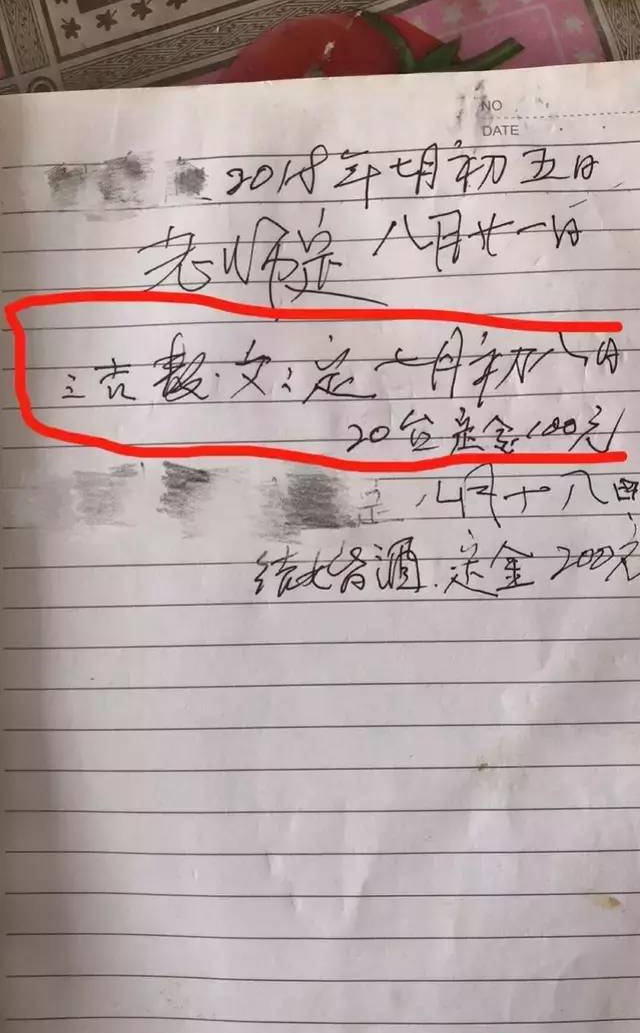 NO
DATE
2018年七月初五日
老师定 八月廿一日
吉数文:定 七月初八日
20台定金100元
八月十八日
结婚酒.定金200元